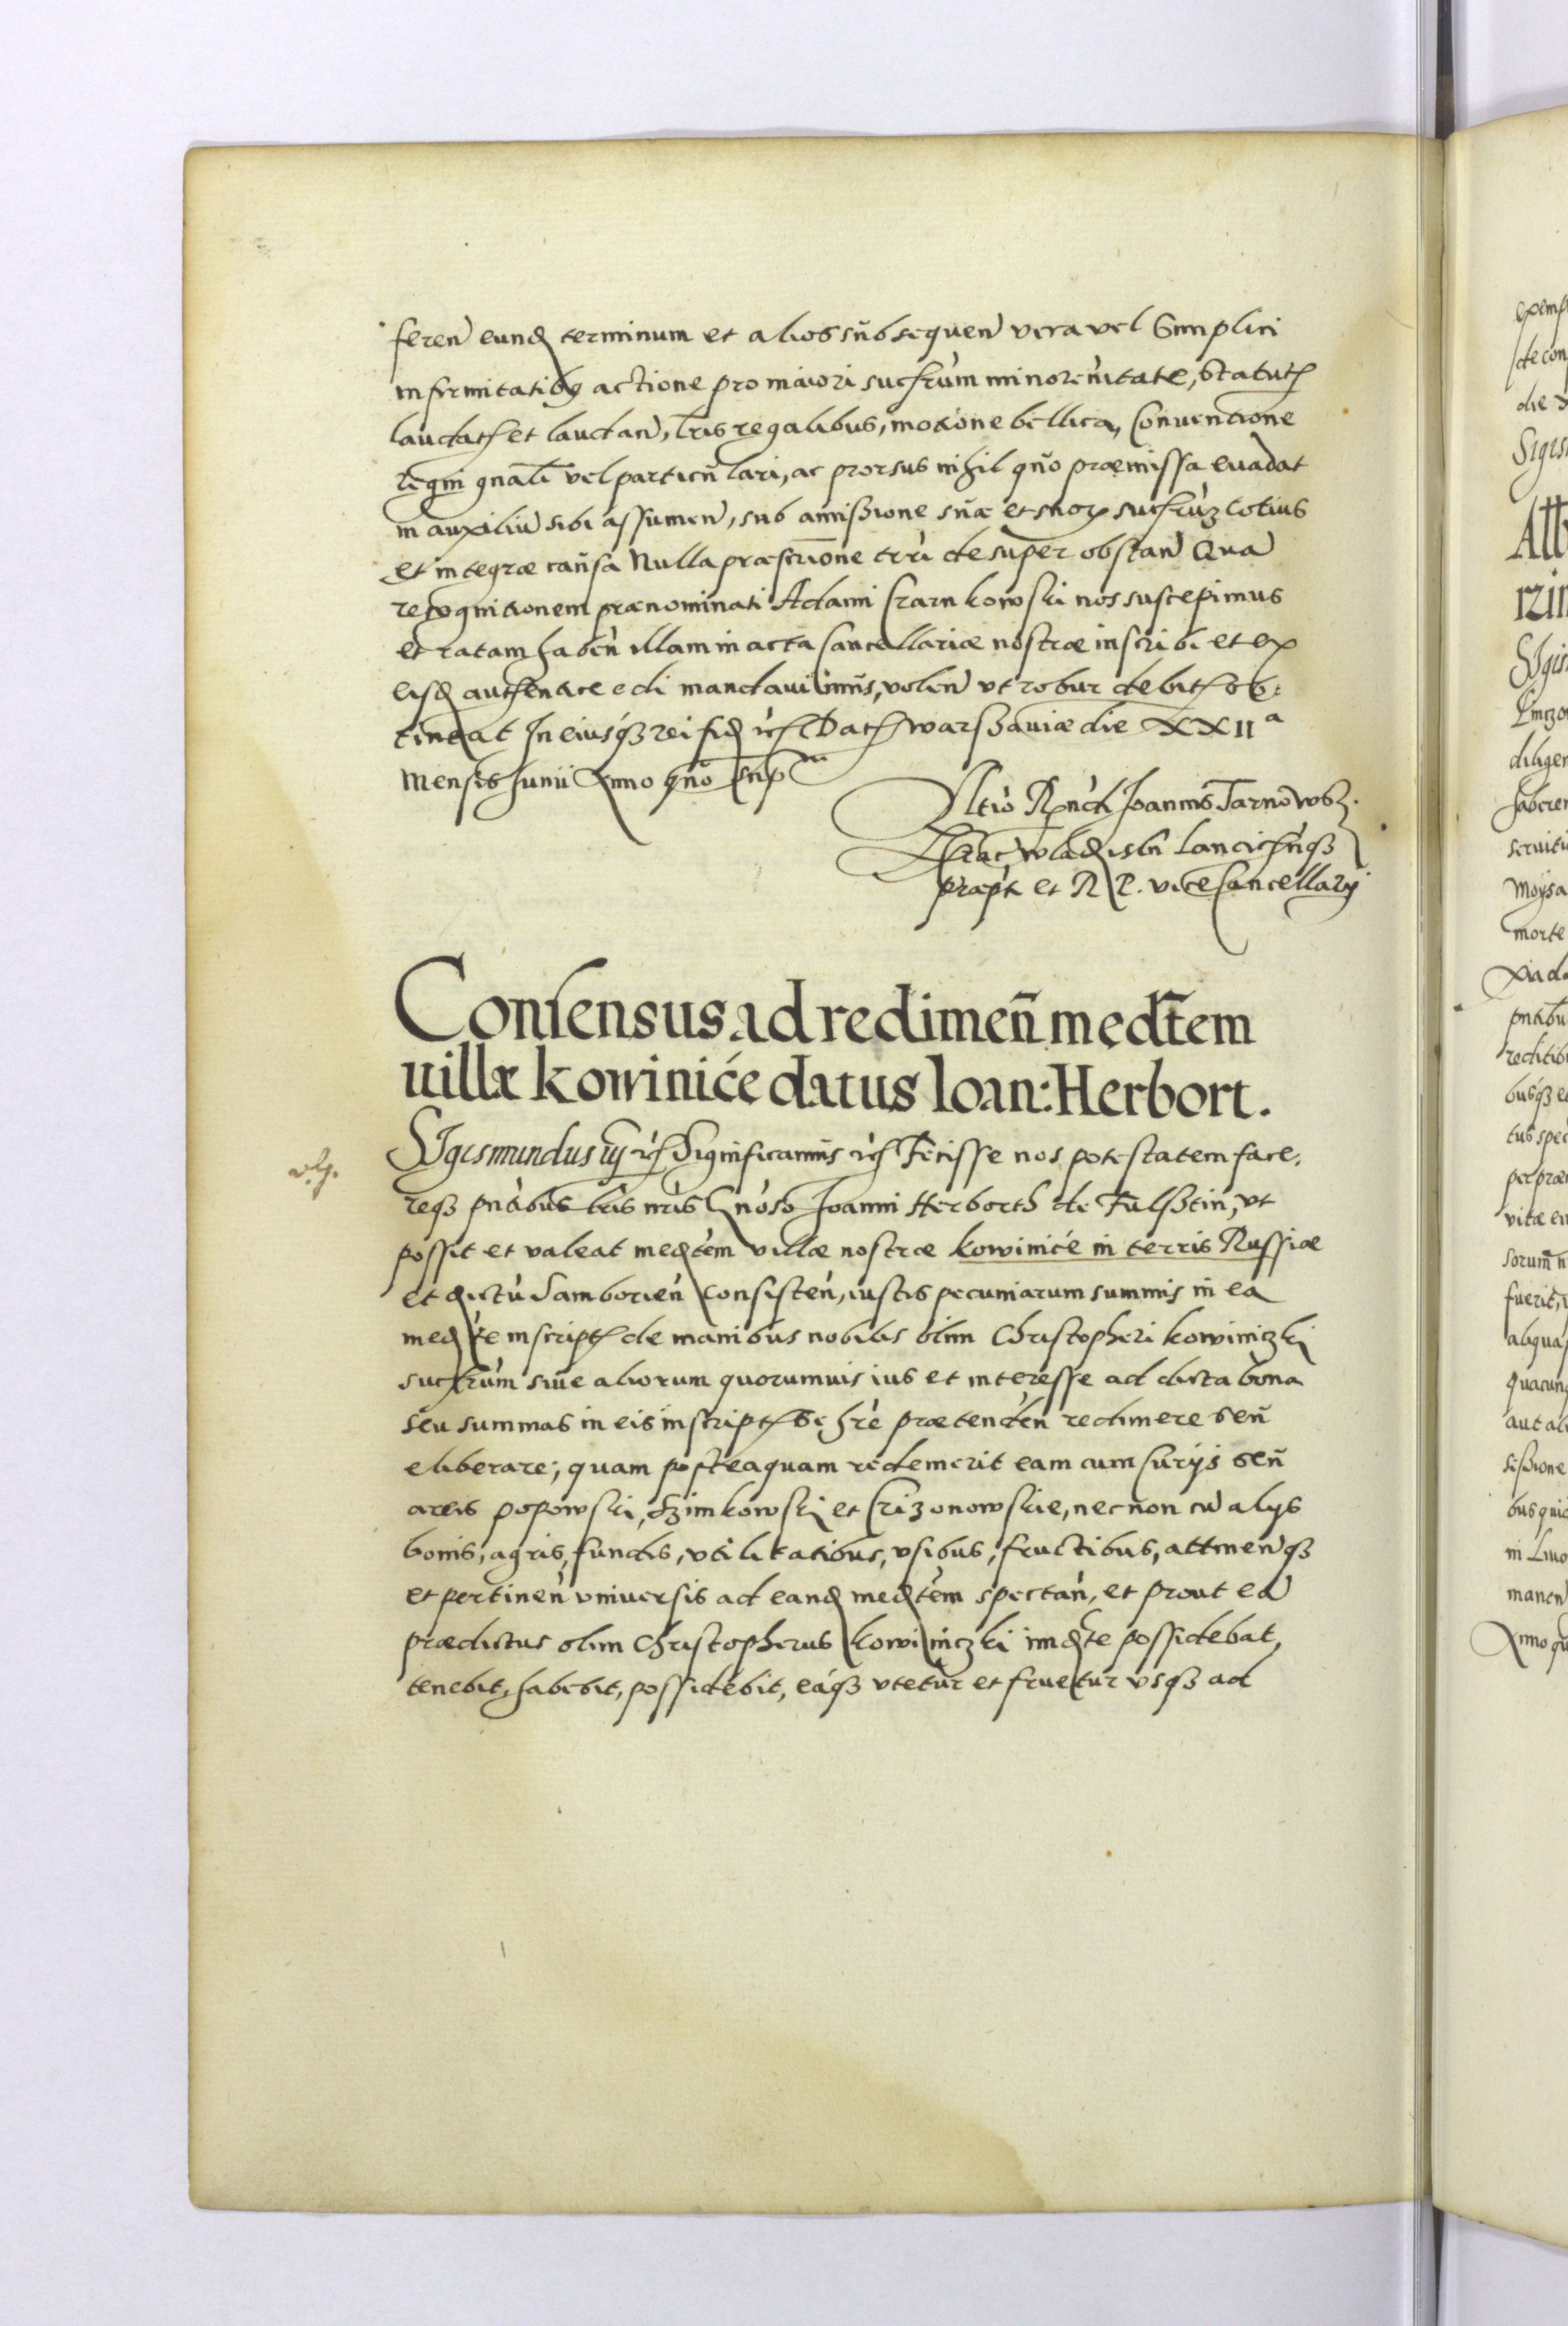 feren eund terminum et alios subsequen vera vel Simplici
infirmitatibus actione pro maiori succrum minorenitate, Statutis
laudatis et laudan, lris regalibus, motione bellica, Conventione
regni gnali vel particulari, ac prorsus nihil quo praemissa evadat
in auxiliu sibi assumen, sub amissione suae et suor succruz totius
et integrae causa Nulla praescrione trri desuper obstan Qua
recognitionem praenominati Adami Czarnkowski nos suscepimus
et ratam haben illam in acta Cancellariae nostrae inscribi et ex
eisd authentice edi mandavimus, volen ut robur debit ob:
tineat In eiusq3 rei fid rc Dat Warszaviae die XXII a
Mensis Junii Anno quo supra
Rltio Rndi Joannis Tarnowsk.
Crac, Wladislu Lanciciensq3
praepti et R P. viceCancellarij
Consensus ad redimen medtem
villae kowinicze datus Ioan: Herbort.
SIgismundus iij rc Significamus rc Fecisse nos potestatem face:
req3 pntibus lris nris Gnoso Joanni Herborth de Fulsztin, ut
possit et valeat medtem villae nostrae kowinicze in terris Russiae
et dictu Samborien consisten, iustis pecuniarum summis in ea
medte inscript de manibus nobilis olim Christopheri kowiniczki
succrum sive aliorum quorumvis ius et interesse ad dicta bona
seu summas in eis inscript se hre praetenden redimere seu
eliberare; quam posteaquam redemerit eam cum Curijs seu
areis popowski, Szimkowski et Crizonowskie, necnon cu alys
bonis, agris, fundis, utilitatibus, usibus, fructibus, attinenq3
et pertinen universis ad eand medtem spectan, et prout ea
praedictus olim Christopherus kowiniczki immedte possidebat,
tenebit, habebit, possidebit, eaq3 utetur et fruetur usq3 ad